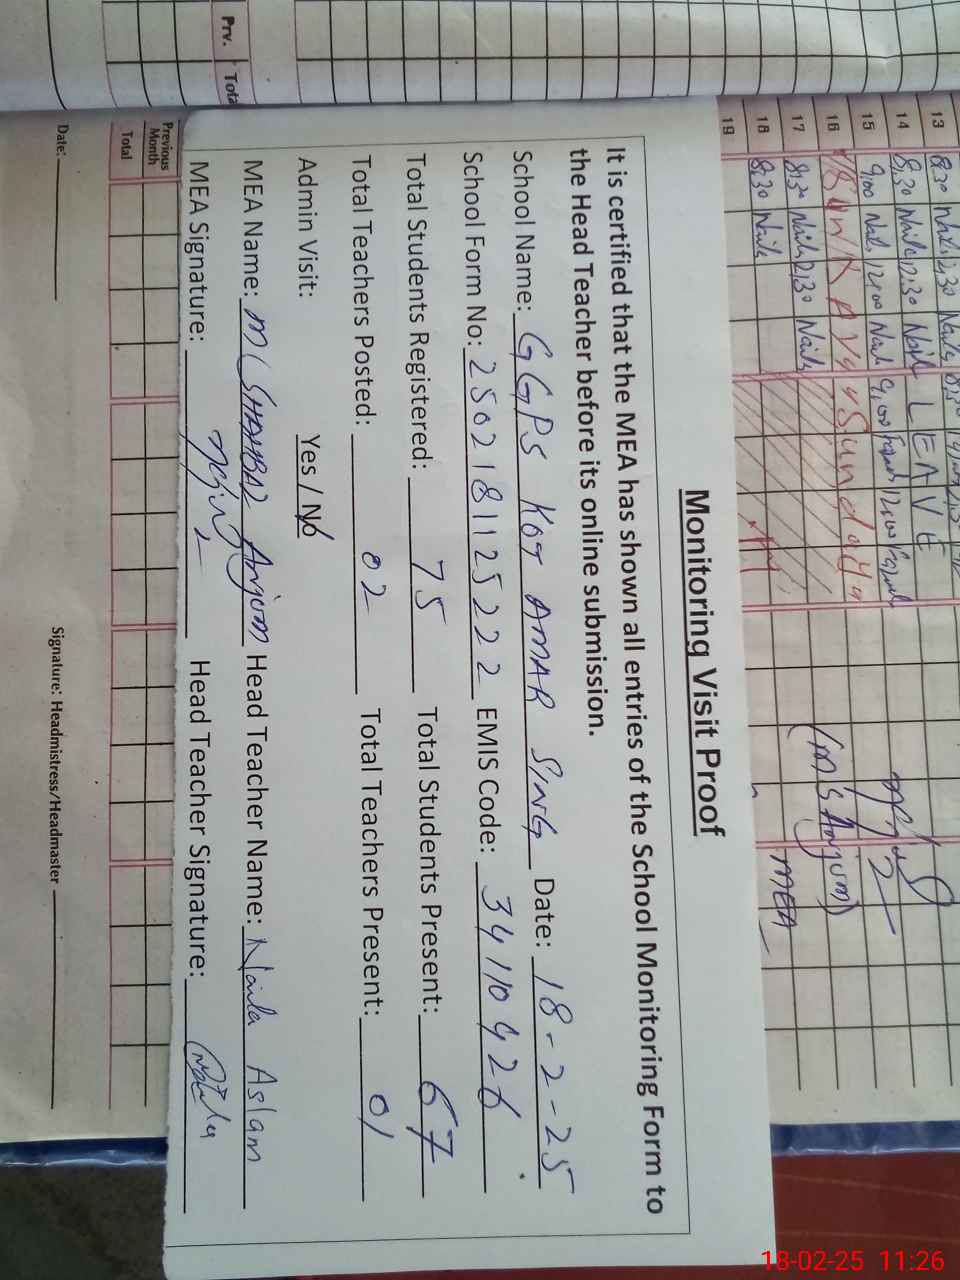 Prv. Tota
13 8:30 Naila 12,30 Naila
14 8,30 Naila 12,30 Naila LEAVE
15 9,00 Naila 12,00 Naila 9,00 12,00
16 Sunday
17 8,30 Naila 12,30 Naila
18 8,30 Naila
19
(M S Anjum)
MEA
Monitoring Visit Proof
It is certified that the MEA has shown all entries of the School Monitoring Form to
the Head Teacher before its online submission.
School Name: GGPS KOT AMAR SING Date: 18-2-25
School Form No: 2502181125222 EMIS Code: 34110426
Total Students Registered: 75 Total Students Present: 67
Total Teachers Posted: 02 Total Teachers Present: 01
Admin Visit: Yes / No
MEA Name: M SHAHBAZ Anjum Head Teacher Name: Naila Aslam
MEA Signature: Head Teacher Signature: Naila
Previous Month
Total
Date: Signature: Headmistress/Headmaster
18-02-25 11:26